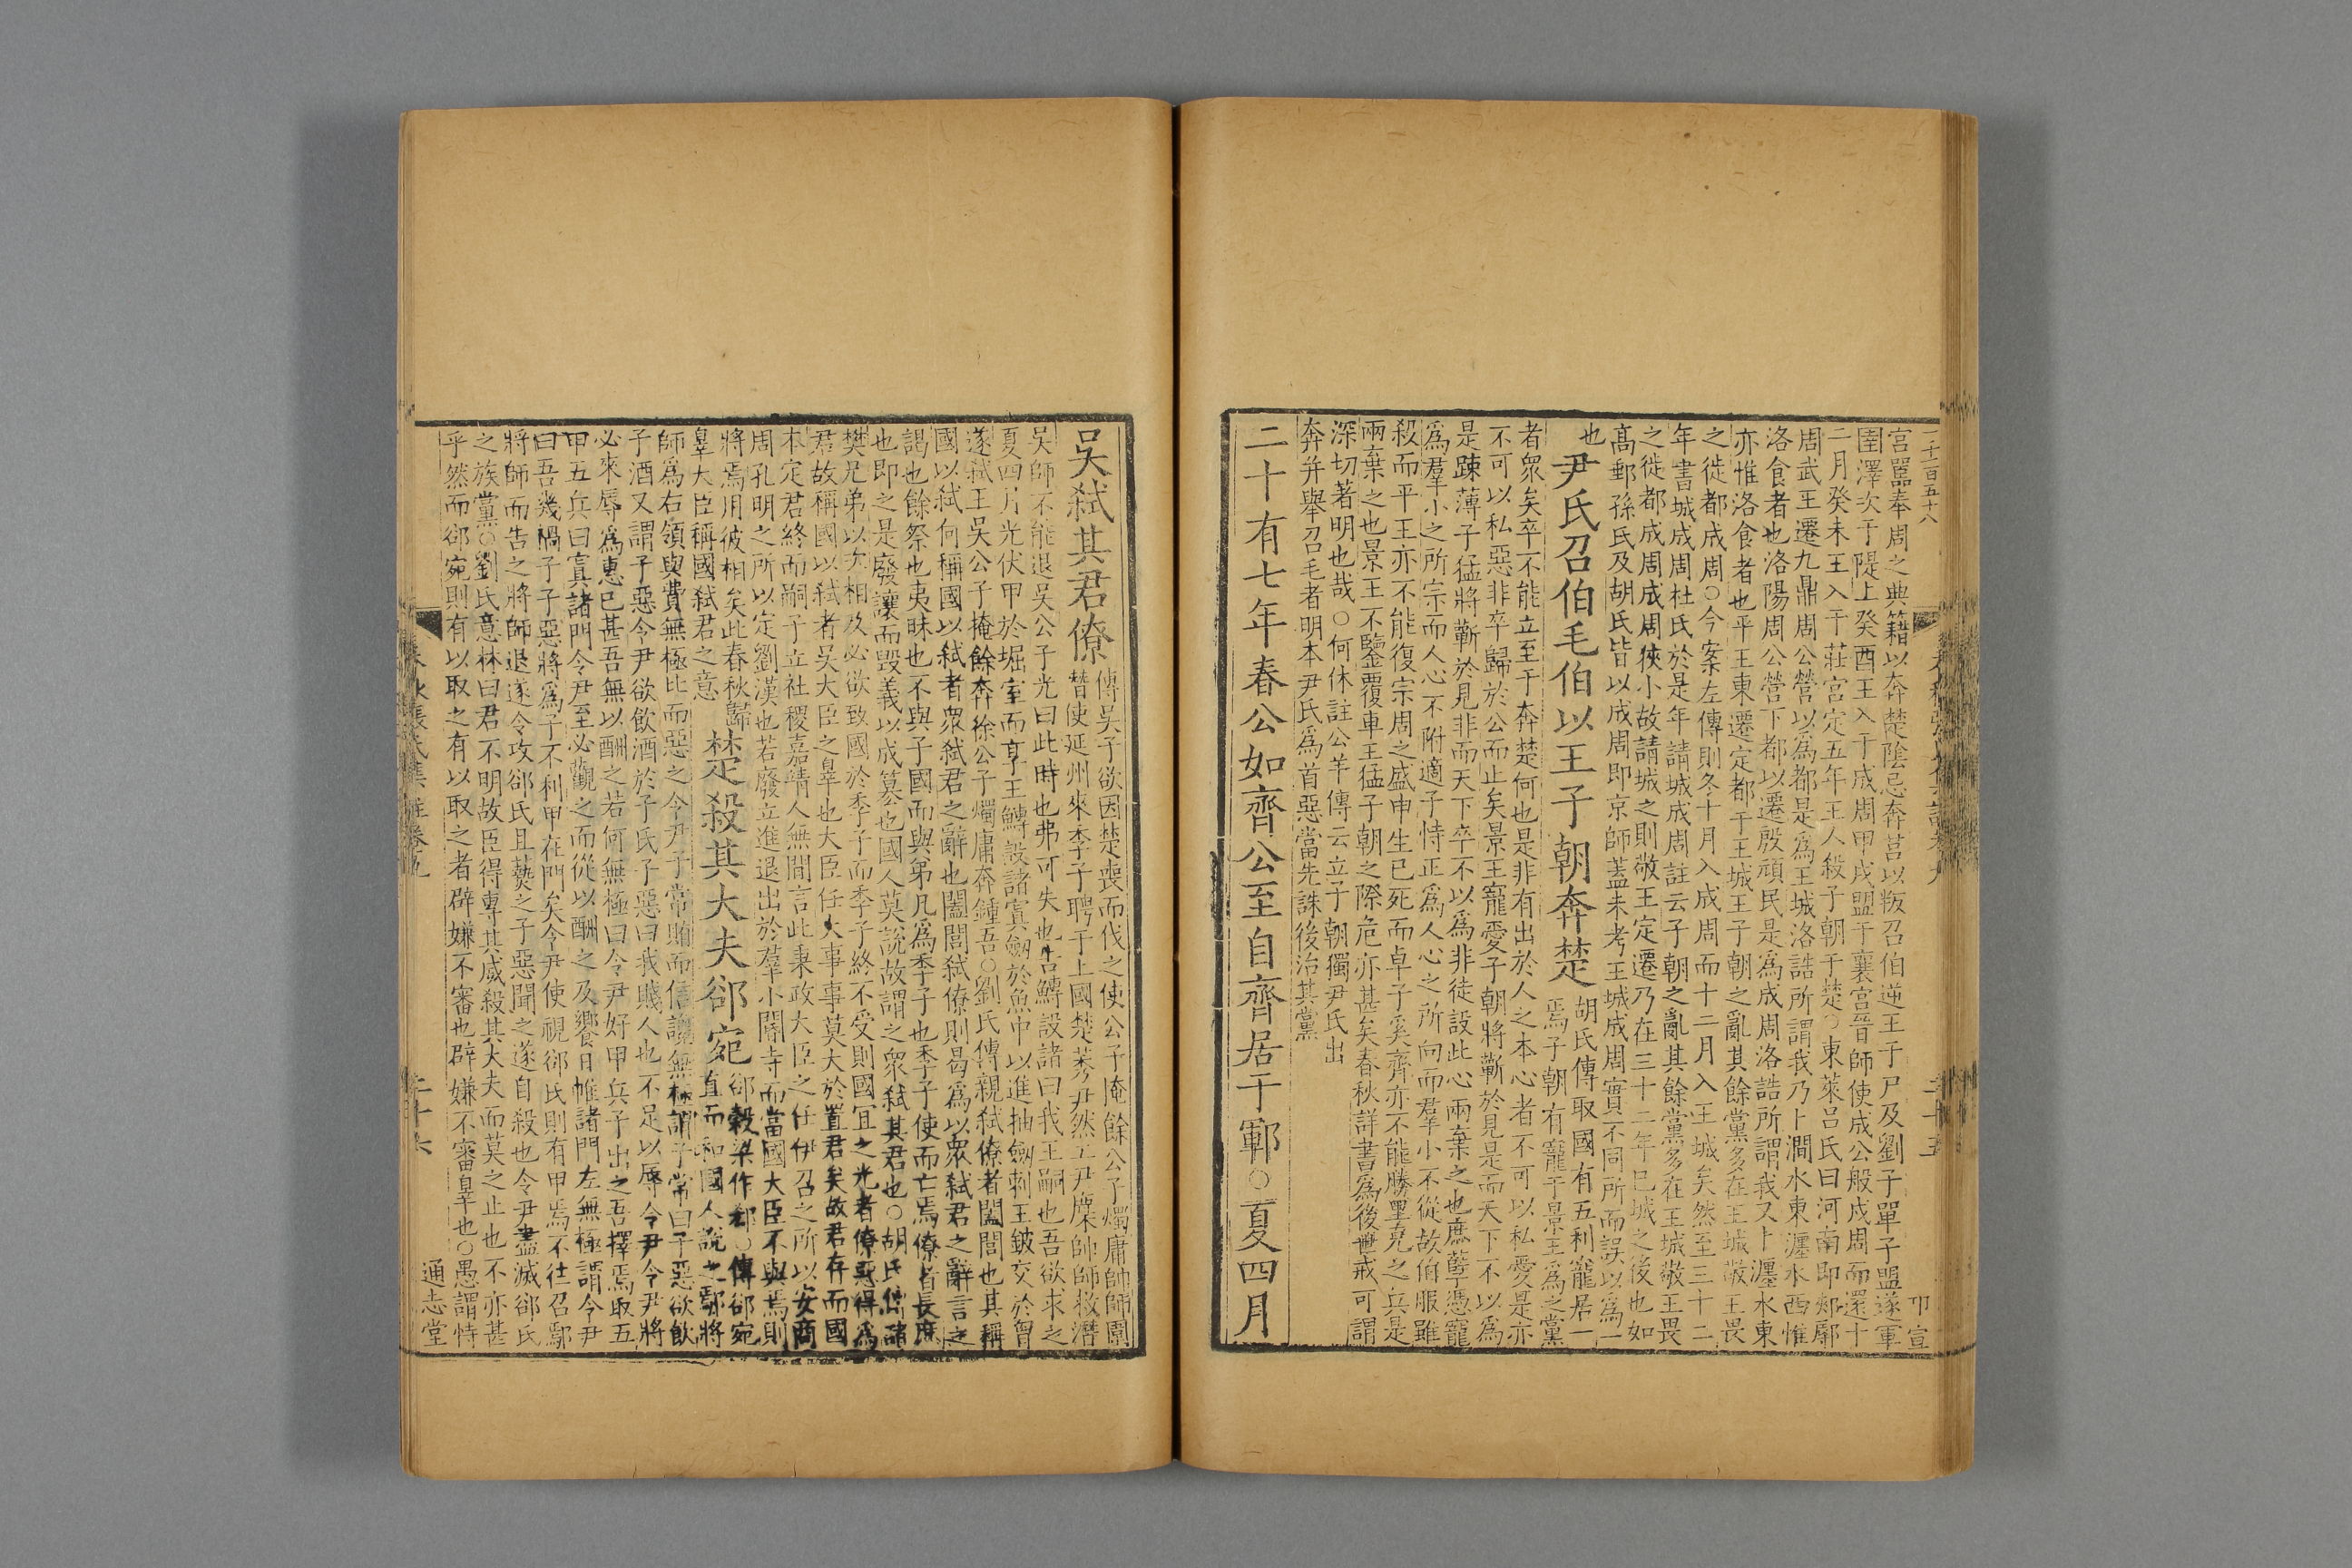 二千二百五十八
宮嚚奉周之典籍以奔楚陰忌奔莒以叛召伯逆王于尸及劉子單子盟遂軍
圉澤次于隄上癸酉王入于成周甲戌盟于襄宮晉師使成公般戍周而還十
二月癸未王入于莊宮定五年王人殺子朝于楚○東萊呂氏曰河南即郟鄏
周武王遷九鼎周公營以為都是為王城洛誥所謂我乃卜澗水東瀍水西惟
洛食者也洛陽周公營下都以遷殷頑民是為成周洛誥所謂我又卜瀍水東
亦惟洛食者也平王東遷定都于王城王子朝之亂其餘黨多在王城敬王畏
之徙都成周○今案左傳則冬十月入成周而十二月入王城矣然至三十二
年書城成周杜氏於是年請城成周註云子朝之亂其餘黨多在王城敬王畏
之徙都成周成周狹小故請城之則敬王定遷乃在三十二年已城之後也如
高郵孫氏及胡氏皆以成周即京師蓋未考王城成周實不同所而誤以為一
也
尹氏召伯毛伯以王子朝奔楚
胡氏傳取國有五利寵居一
焉子朝有寵于景王為之黨
者眾矣卒不能立至于奔楚何也是非有出於人之本心者不可以私愛是亦
不可以私惡非卒歸於公而止矣景王寵愛子朝將蘄於見是而天下不以為
是踈薄子猛將蘄於見非而天下卒不以為非徒設此心兩棄之也庶孽憑寵
為羣小之所宗而人心不附適子恃正為人心之所向而羣小不從故伯服雖
殺而平王亦不能復宗周之盛申生已死而卓子奚齊亦不能勝里克之兵是
兩棄之也景王不鑒覆車王猛子朝之際危亦甚矣春秋詳書為後世戒可謂
深切著明也哉○何休註公羊傳云立子朝獨尹氏出
奔并舉召毛者明本尹氏為首惡當先誅後治其黨
二十有七年春公如齊公至自齊居于鄆○夏四月
吳弒其君僚
傳吳子欲因楚喪而伐之使公子掩餘公子燭庸帥師圍
朁使延州來季子聘于上國楚莠尹然工尹麇帥師救潛
吳師不能退吳公子光曰此時也弗可失也告鱄設諸曰我王嗣也吾欲求之
夏四月光伏甲於堀室而享王鱄設諸寘劒於魚中以進抽劒刺王鈹交於曾
遂弒王吳公子掩餘奔徐公子燭庸奔鍾吾○劉氏傳親弒僚者闔閭也其稱
國以弒何稱國以弒者眾弒君之辭也闔閭弒僚則曷為以眾弒君之辭言之
謁也餘祭也夷昧也不與子國而與弟凡為季子也季子使而亡焉僚者長庶
也即之是廢讓而毀義以成篡也國人莫說故謂之眾弒其君也○胡氏傳諸
樊兄弟以次相及必欲致國於季子而季子終不受則國宜之光者僚惡得為
君故稱國以弒者吳大臣之辠也大臣任大事事莫大於置君矣故君存而國
本定君終而嗣子立社稷嘉靖人無間言此秉政大臣之任伊召之所以安商
周孔明之所以定劉漢也若廢立進退出於羣小閽寺而當國大臣不與焉則
將焉用彼相矣此春秋歸
辠大臣稱國弒君之意
楚殺其大夫郤宛
郤穀梁作郄○傳郤宛
直而和國人說之鄢將
師為右領與費無極比而惡之令尹子常賄而信讒無極謂子常曰子惡欲飲
子酒又謂子惡令尹欲飲酒於子氏子惡曰我賤人也不足以辱令尹令尹將
必來辱為惠已甚吾無以酬之若何無極曰令尹好甲兵子出之吾擇焉取五
甲五兵曰寘諸門令尹至必觀之而從以酬之及饗日帷諸門左無極謂令尹
曰吾幾禍子子惡將為子不利甲在門矣令尹使視郤氏則有甲焉不往召鄢
將師而告之將師退遂令攻郤氏且爇之子惡聞之遂自殺也令尹盡滅郤氏
之族黨○劉氏意林曰君不明故臣得專其威殺其大夫而莫之止也不亦甚
乎然而郤宛則有以取之有以取之者辟嫌不審也辟嫌不審辠也○愚謂恃
通志堂